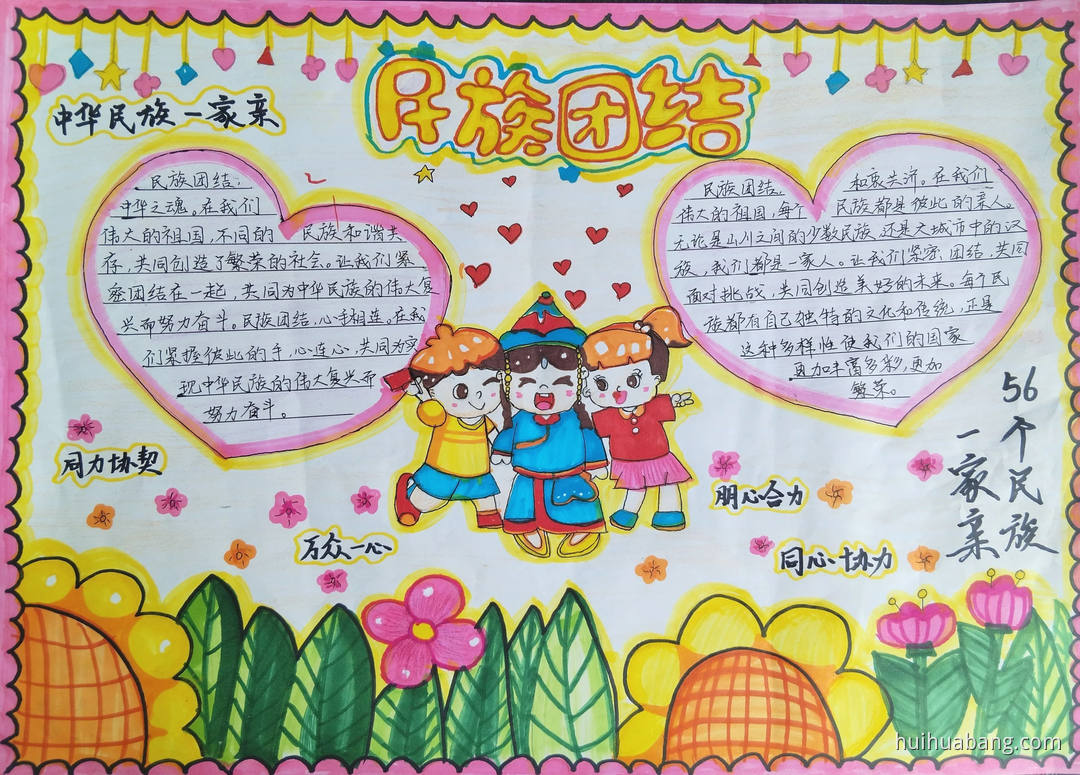 民族团结
中华民族一家亲
民族团结,
中华之魂。在我们
伟大的祖国,不同的 民族和谐共
存,共同创造了繁荣的社会。让我们紧
密团结在一起,共同为中华民族的伟大复
兴而努力奋斗。民族团结,心手相连。在我
们紧握彼此的手,心连心,共同为实
现中华民族的伟大复兴而
努力奋斗。
民族团结, 和衷共济。在我们
伟大的祖国,每个 民族都是彼此的亲人。
无论是山川之间的少数民族,还是大城市中的汉
族,我们都是一家人。让我们紧密团结,共同
面对挑战,共同创造美好的未来。每个民
族都有自己独特的文化和传统,正是
这种多样性使我们的国家
更加丰富多彩,更加
繁荣。
同力协契
万众一心
朋心合力
同心协力
56个民族
一家亲
huihuabang.com